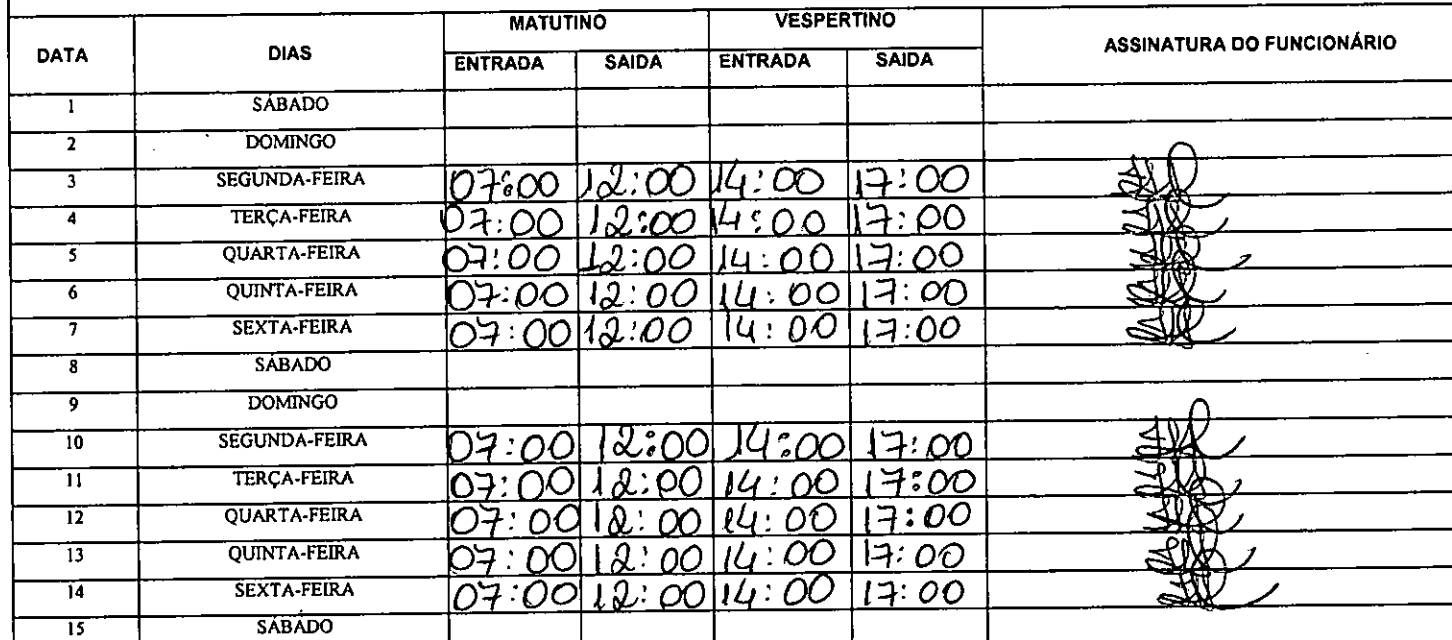 DATA DIAS MATUTINO VESPERTINO ASSINATURA DO FUNCIONÁRIO
ENTRADA SAIDA ENTRADA SAIDA
1 SÁBADO
2 DOMINGO
3 SEGUNDA-FEIRA 07:00 12:00 14:00 17:00
4 TERÇA-FEIRA 07:00 12:00 14:00 17:00
5 QUARTA-FEIRA 07:00 12:00 14:00 17:00
6 QUINTA-FEIRA 07:00 12:00 14:00 17:00
7 SEXTA-FEIRA 07:00 12:00 14:00 17:00
8 SÁBADO
9 DOMINGO
10 SEGUNDA-FEIRA 07:00 12:00 14:00 17:00
11 TERÇA-FEIRA 07:00 12:00 14:00 17:00
12 QUARTA-FEIRA 07:00 12:00 14:00 17:00
13 QUINTA-FEIRA 07:00 12:00 14:00 17:00
14 SEXTA-FEIRA 07:00 12:00 14:00 17:00
15 SÁBADO